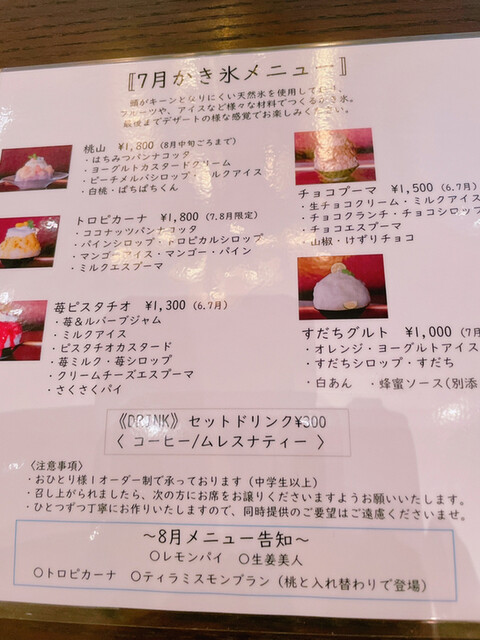 〚7月かき氷メニュー〛
頭がキーンとなりにくい天然氷を使用して
フルーツや、アイスなど様々な材料でつくるかき氷。
最後までデザートの様な感覚でお楽しみください。
桃山 ¥1,800 (8月中旬ごろまで)
・はちみつパンナコッタ
・ヨーグルトカスタードクリーム
・ピーチメルバシロップ・ミルクアイス
・白桃・ぱちぱちくん
トロピカーナ ¥1,800 (7.8月限定)
・ココナッツパンナコッタ
・パインシロップ・トロピカルシロップ
・マンゴーアイス・マンゴー・パイン
・ミルクエスプーマ
苺ピスタチオ ¥1,300 (6.7月)
・苺&ルバーブジャム
・ミルクアイス
・ピスタチオカスタード
・苺ミルク・苺シロップ
・クリームチーズエスプーマ
・さくさくパイ
チョコプーマ ¥1,500 (6.7月)
・生チョコクリーム・ミルクアイス
・チョコクランチ・チョコシロップ
・チョコエスプーマ
・山椒・けずりチョコ
すだちグルト ¥1,000 (7月
・オレンジ・ヨーグルトアイス
・すだちシロップ・すだち
・白あん ・蜂蜜ソース(別添
《DRINK》 セットドリンク¥300
〈 コーヒー/ムレスナティー 〉
〈注意事項〉
・おひとり様1オーダー制で承っております (中学生以上)
・召し上がられましたら、次の方にお席をお譲りくださいますようお願いいたします。
・ひとつずつ丁寧にお作りいたしますので、同時提供のご要望はご遠慮くださいませ。
～8月メニュー告知～
○レモンパイ ○生姜美人
○トロピカーナ ○ティラミスモンブラン (桃と入れ替わりで登場)